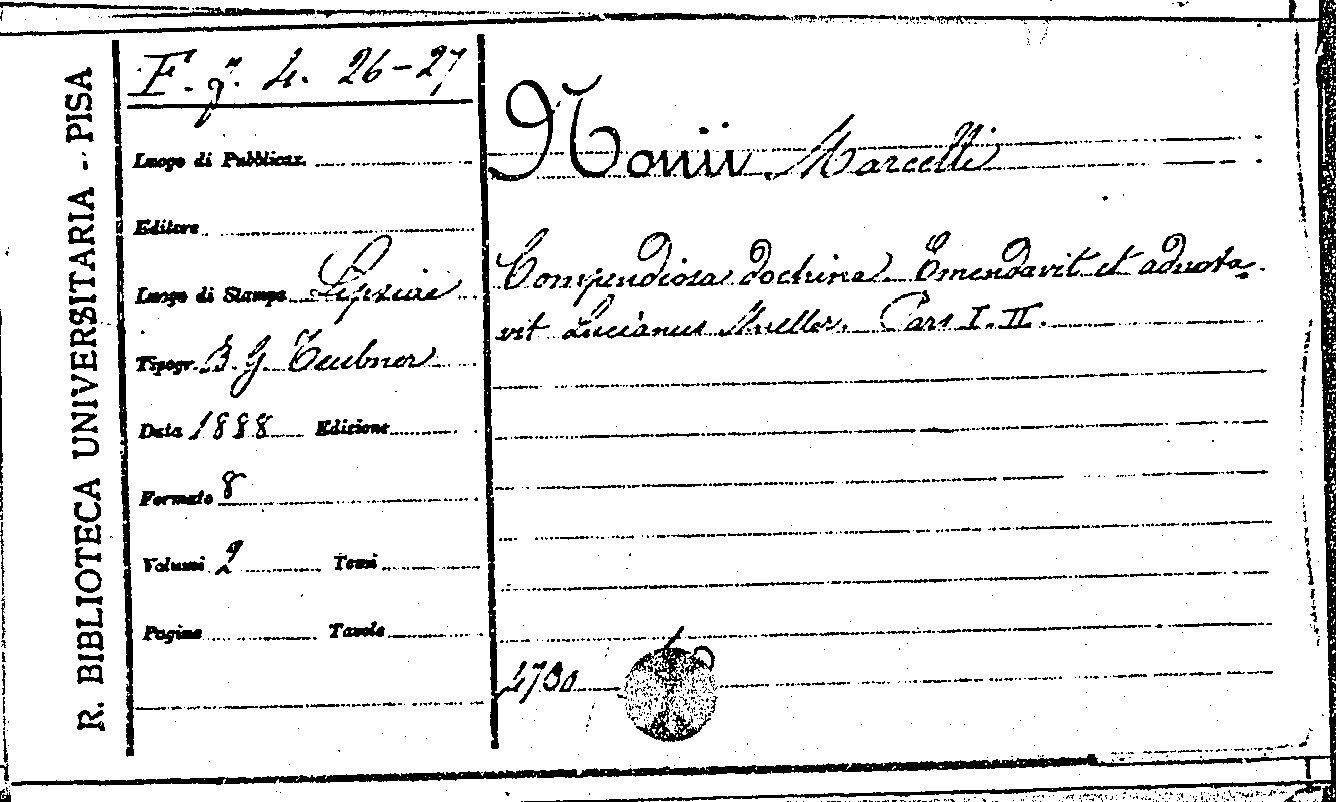 R. BIBLIOTECA UNIVERSITARIA - PISA
F. g. 4. 26-27
Luogo di Pubblicaz.
Editore
Luogo di Stampa Lipsiae
Tipogr. B. G. Teubner
Data 1888 Edizione
Formato 8
Volumi 2 Tomi
Pagine Tavole
Nonii Marcelli
Compendiosa doctrina. Emendavit et adnota-
vit Lucianus Mueller. Pars I. II.